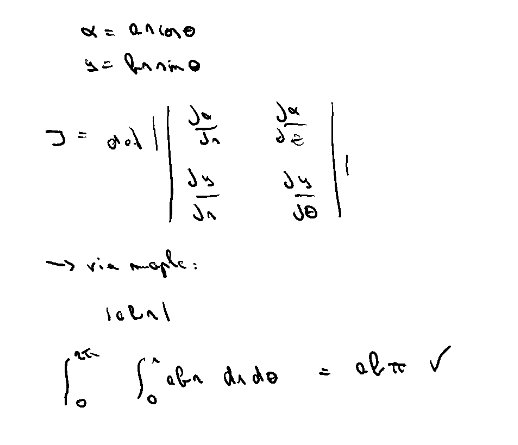 x = ar cos θ
y = br sin θ
J = det | ∂x/∂r ∂x/∂θ |
∂y/∂r ∂y/∂θ
→ via maple:
|abr|
∫_0^{2π} ∫_0^1 abr dr dθ = abπ ✓